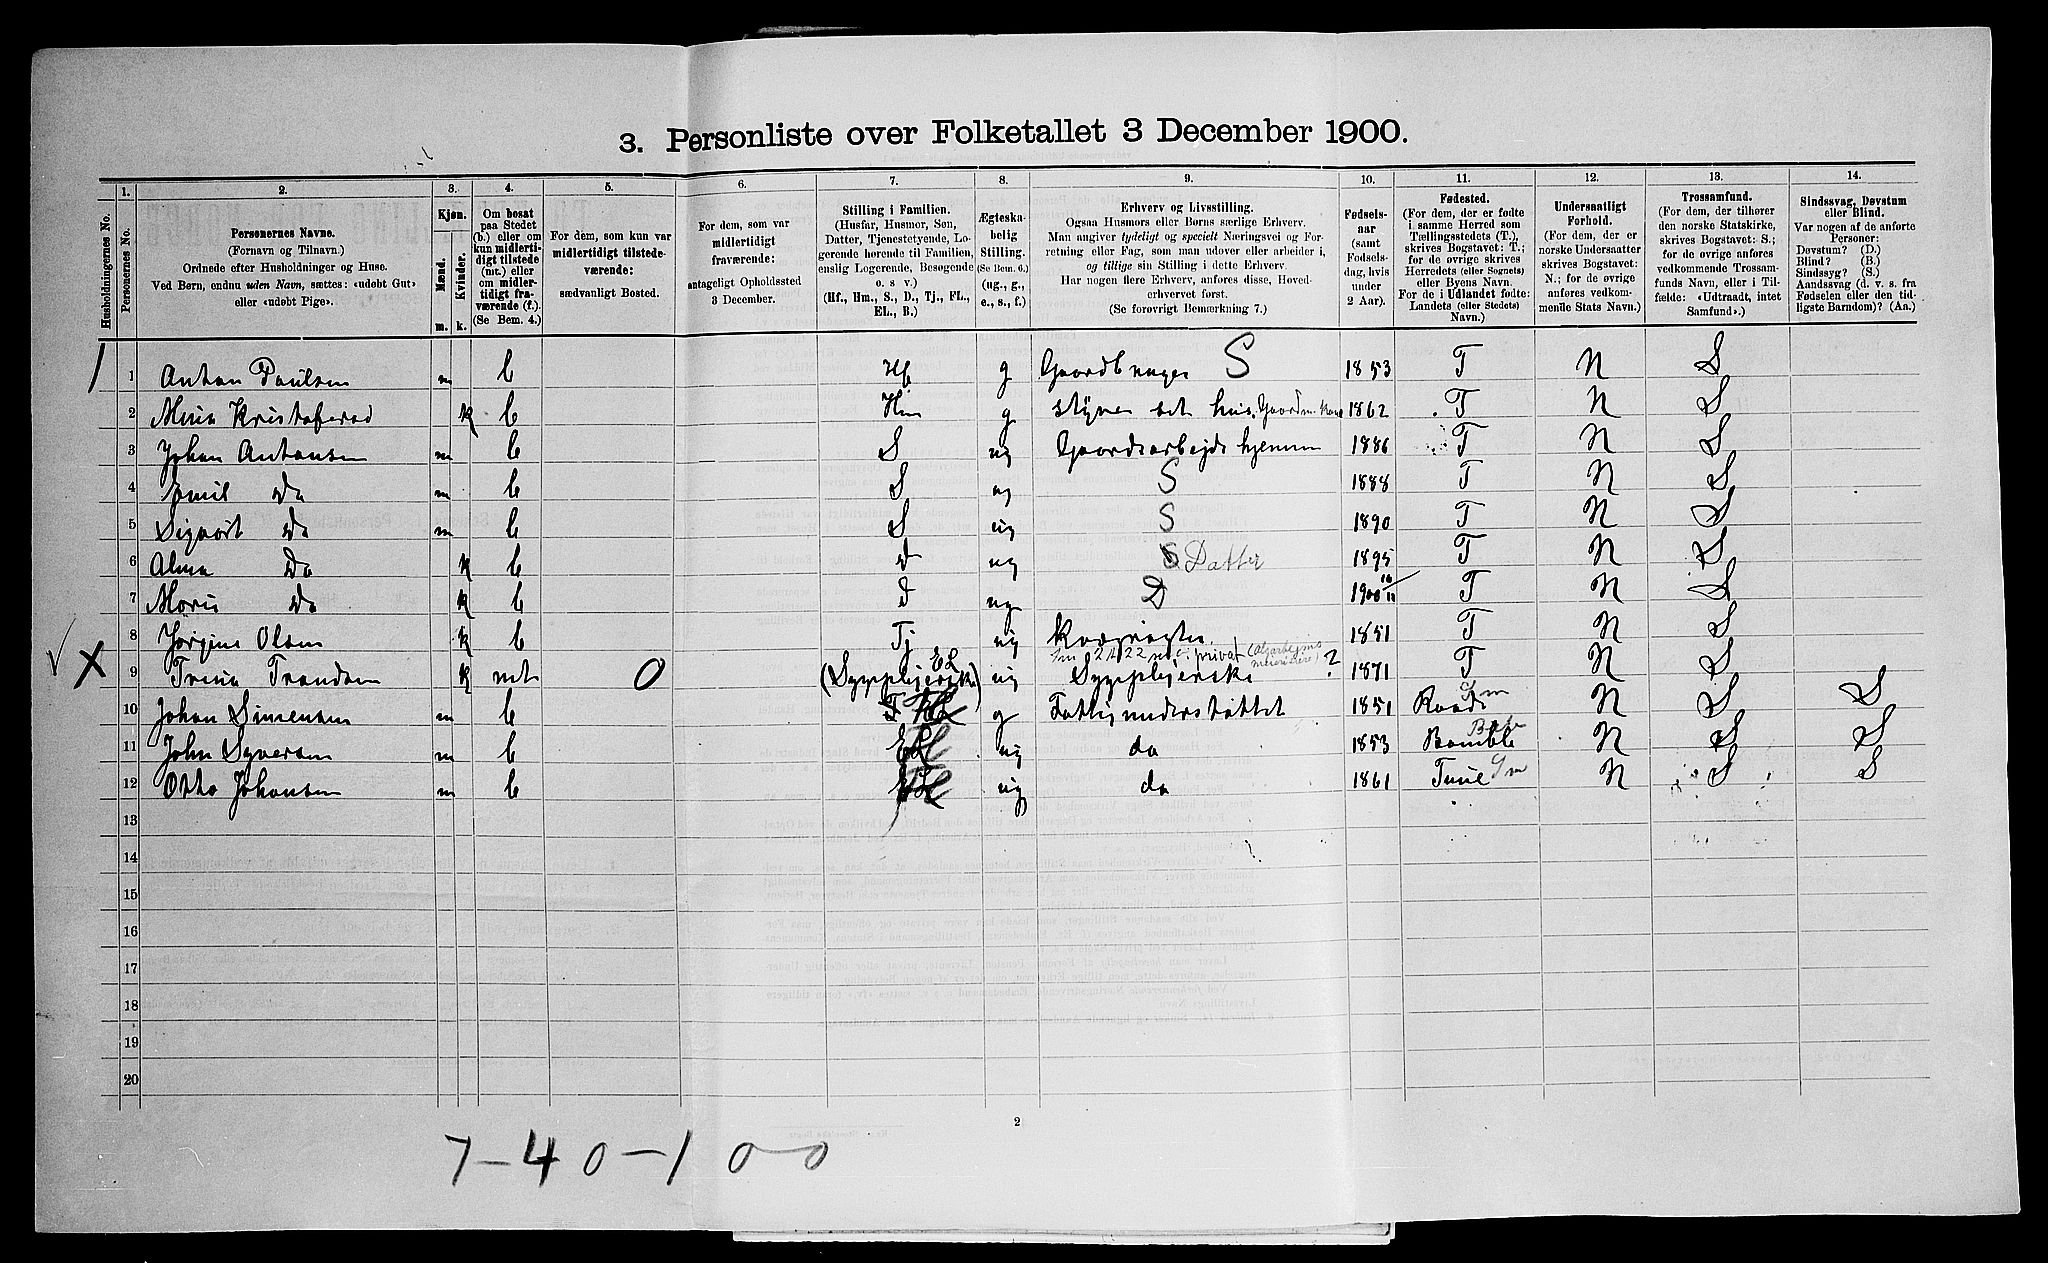 3. Personliste over Folketallet 3 December 1900.
Husholdningernes No.
1. Personernes No.
2. Personernes Navne. (Fornavn og Tilnavn.) Ordnede efter Husholdninger og Huse. Ved Børn, endnu uden Navn, sættes: «udøbt Gut» eller «udøbt Pige».
3. Kjøn. Mænd. Kvinder. m. k.
4. Om bosat paa Stedet (b.) eller om kun midlertidigt tilstede (mt.) eller om midlertidigt fraværende (f.). (Se Bem. 4.)
5. For dem, som kun var midlertidigt tilstedeværende: sædvanligt Bosted.
6. For dem, som var midlertidigt fraværende: antageligt Opholdssted 3 December.
7. Stilling i Familien. (Husfar, Husmor, Søn, Datter, Tjenestetyende, Logerende hørende til Familien, enslig Logerende, Besøgende o. s. v.) (Hf., Hm., S., D., Tj., FL., EL., B.)
8. Ægteskabelig Stilling. (Se Bem. 6.) (ug., g., e., s., f.)
9. Erhverv og Livsstilling. Ogsaa Husmors eller Børns særlige Erhverv. Man angiver tydeligt og specielt Næringsvei og Forretning eller Fag, som man udøver eller arbeider i, og tillige sin Stilling i dette Erhverv. Har nogen flere Erhverv, anføres disse, Hovederhvervet først. (Se forøvrigt Bemærkning 7.)
10. Fødselsaar (samt Fødselsdag, hvis under 2 Aar).
11. Fødested. (For dem, der er fødte i samme Herred som Tællingsstedets (T.), skrives Bogstavet: T.; for de øvrige skrives Herredets (eller Sognets) eller Byens Navn. For de i Udlandet fødte: Landets (eller Stedets) Navn.)
12. Undersaatligt Forhold. (For dem, der er norske Undersaatter skrives Bogstavet: N.; for de øvrige anføres vedkommende Stats Navn.)
13. Trossamfund. (For dem, der tilhører den norske Statskirke, skrives Bogstavet: S.; for de øvrige anføres vedkommende Trossamfunds Navn, eller i Tilfælde: «Udtraadt, intet Samfund».)
14. Sindssvag, Døvstum eller Blind. Var nogen af de anførte Personer: Døvstum? (D.) Blind? (B.) Sindssyg? (S.) Aandssvag (d. v. s. fra Fødselen eller den tidligste Barndom)? (Aa.)
1 1 Anton Paulsen m b Hf g Gaardbruger S 1853 T N S
2 Mina Kristofersd k b Hm g 1862 T N S
3 Johan Antonsen m b S ug Gaardsarbejde hjemme 1886 T N S
4 Emil Do m b S ug S 1888 T N S
5 Sigvart Do m b S ug S 1890 T N S
6 Alma Do k b D ug S Datter 1895 T N S
7 Do k b D ug D 1900 T N S
8 Jørgine Olsen k b Tj ug 1851 T N S
X 9 k mt 0 (Sygeplejerske) EL ug privat Sygeplejerske ? 1871 T N S
10 Johan Simensen m b g Fattigunderstøttet 1851 N S S
11 John Syversen m b EL ug do 1853 Bamble N S S
12 Otto Johansen m b ug do 1861 Tune Sm N S S
13
14
15
16
17
18
19
20
2
7-40-100